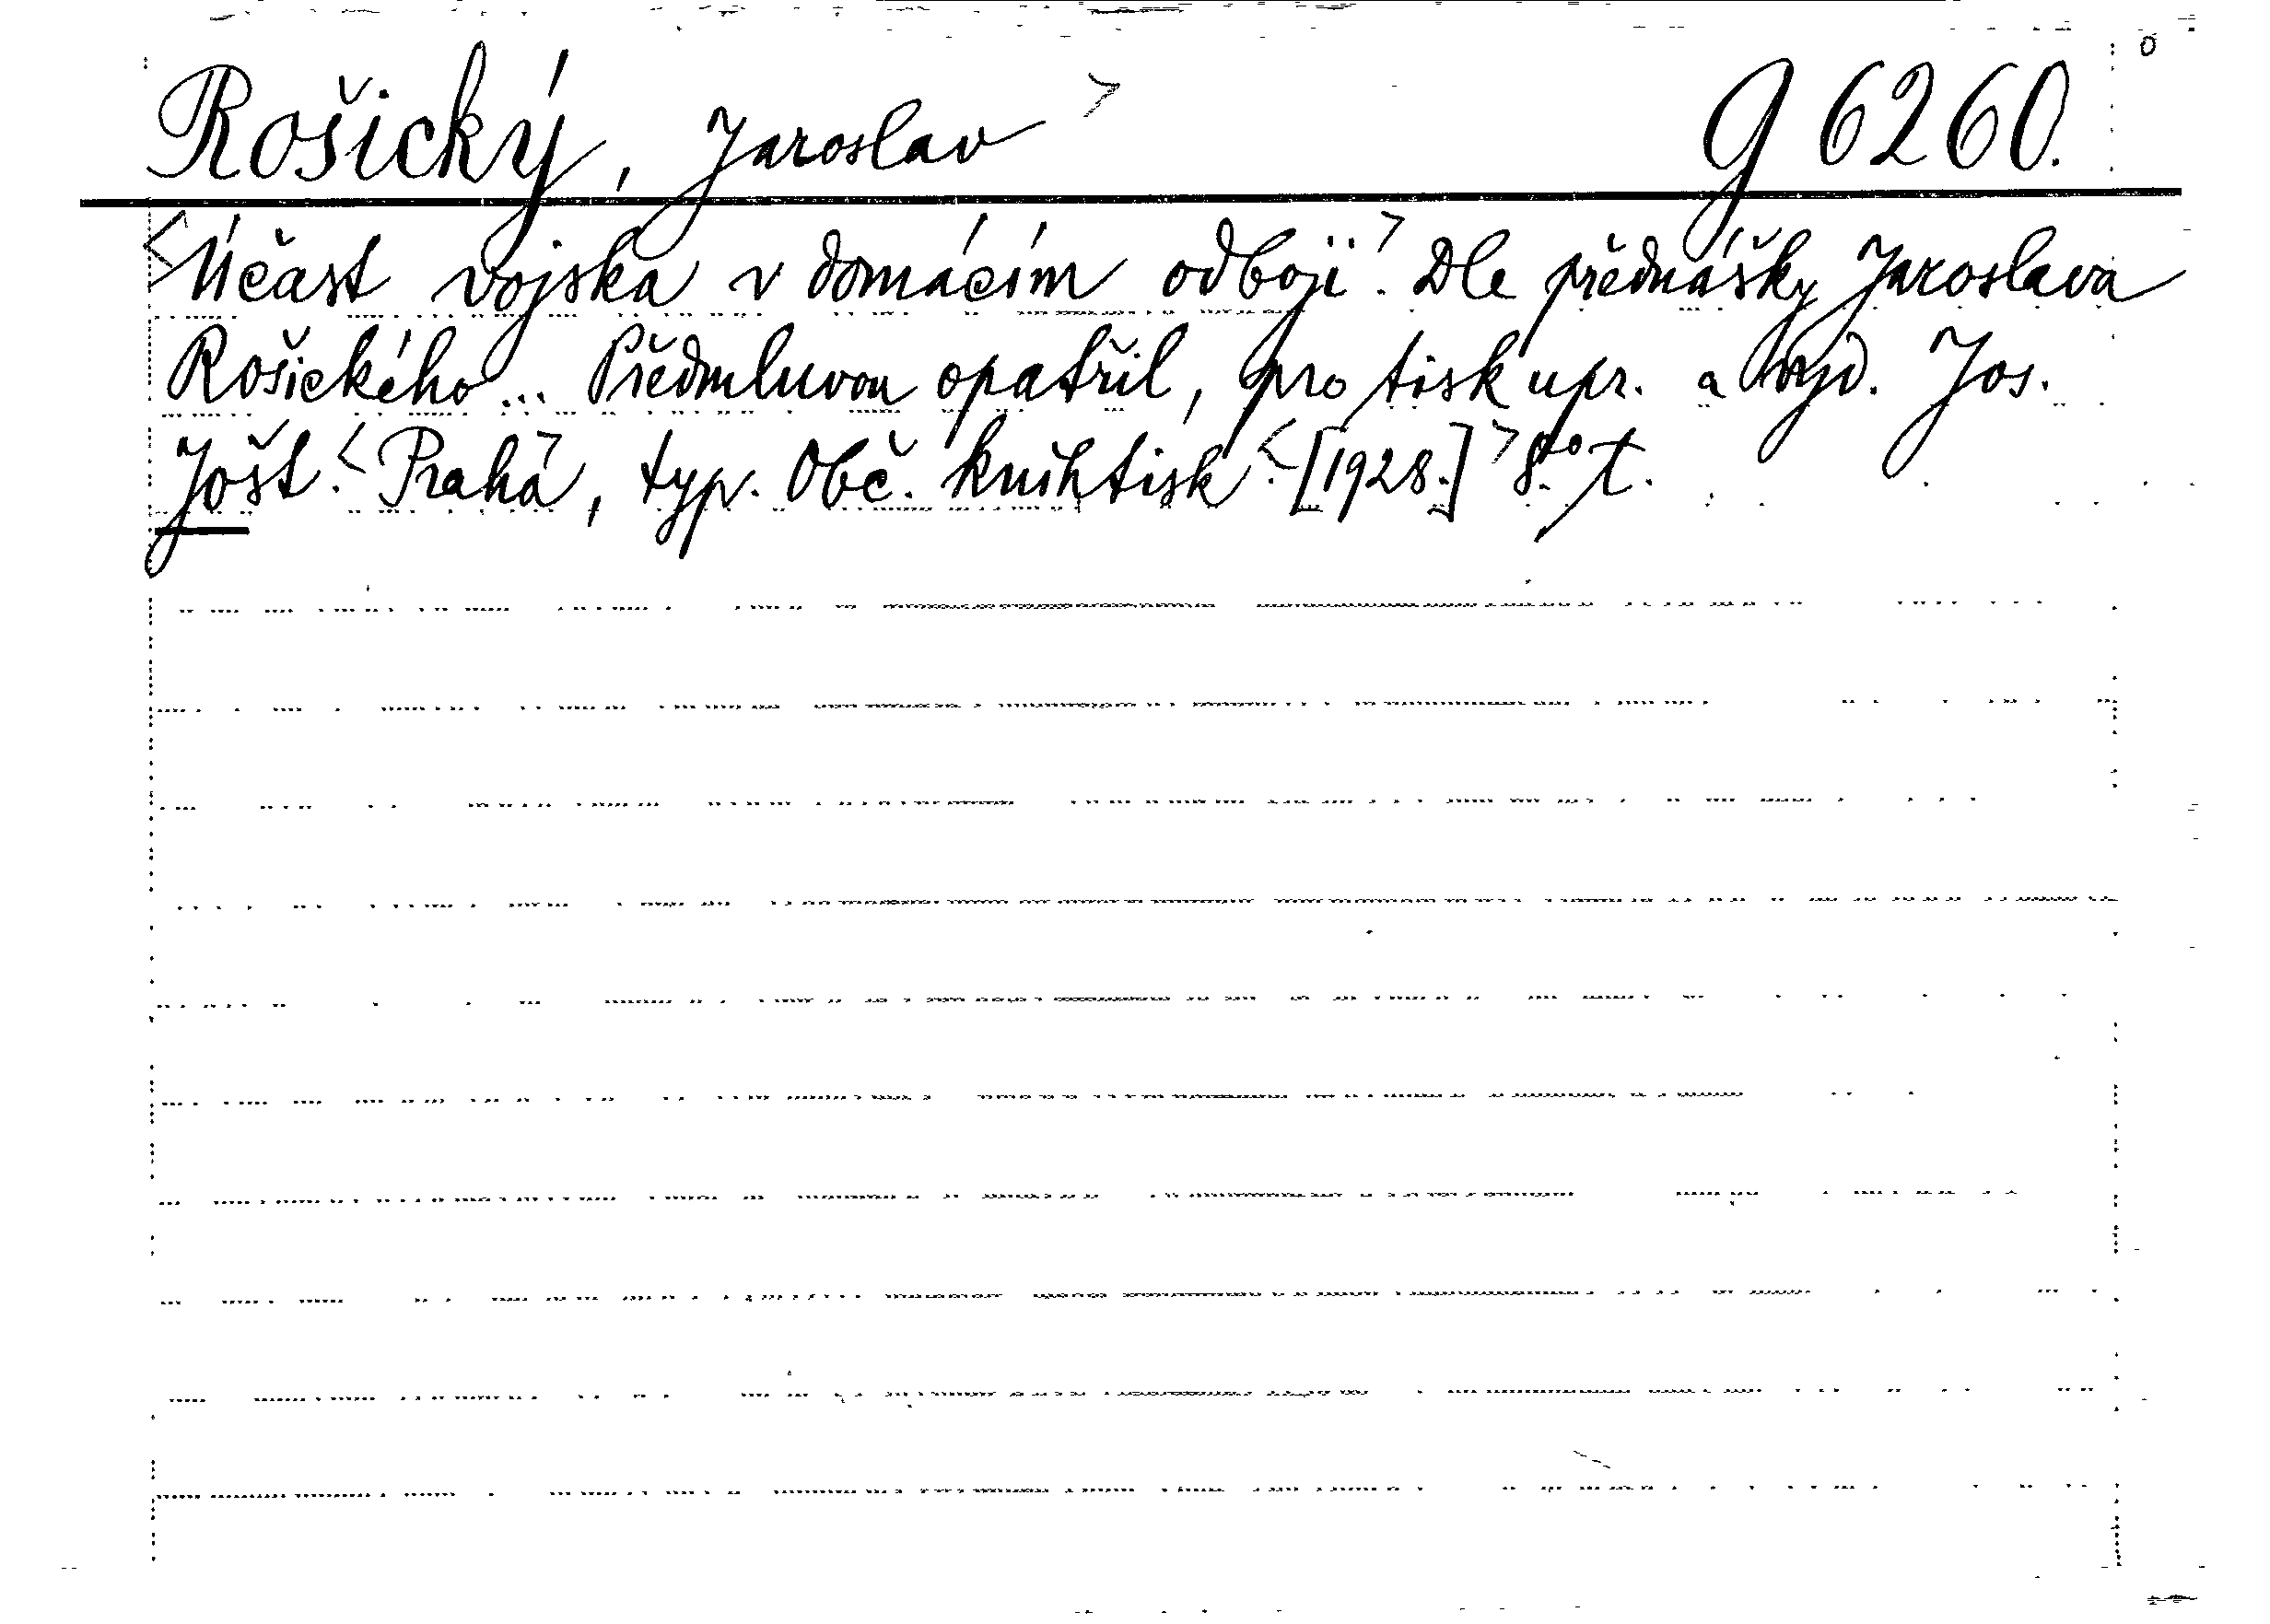 Rošický, Jaroslav > g 6260.
<Účast vojska v domácím odboji>. Dle přednášky Jaroslava
Rošického... Předmluvou opatřil, pro tisk upr. a vyd. Jos.
Jošt. <Praha>, typ. Obč. knihtisk. <[1928.]> 8°. t.